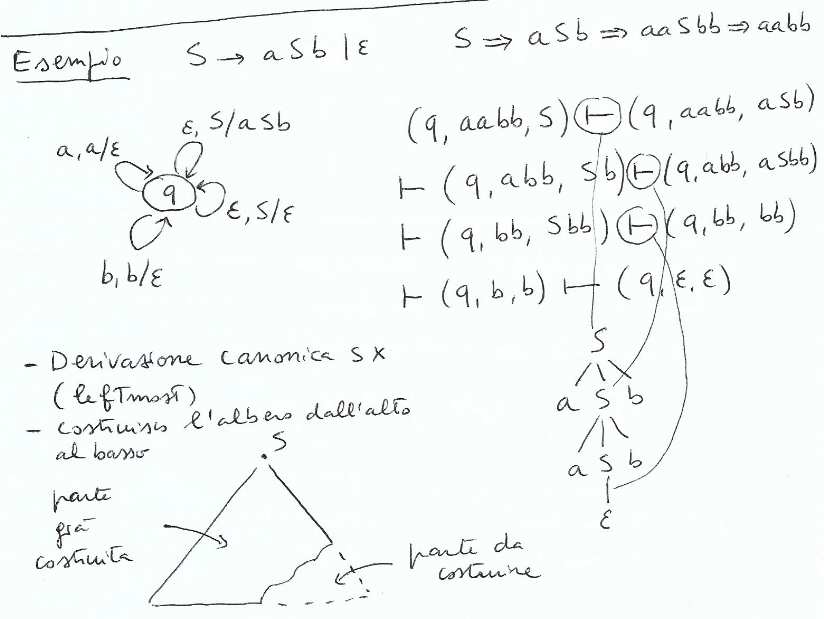 Esempio S → aSb | ε S ⇒ aSb ⇒ aaSbb ⇒ aabb
ε, S/aSb
a, a/ε
q
ε, S/ε
b, b/ε
(q, aabb, S) ⊢ (q, aabb, aSb)
⊢ (q, abb, Sb) ⊢ (q, abb, aSbb)
⊢ (q, bb, Sbb) ⊢ (q, bb, bb)
⊢ (q, b, b) ⊢ (q, ε, ε)
S
a S b
a S b
ε
- Derivazione canonica sx
(leftmost)
- costruisco l'albero dall'alto
al basso
S
parte
già
costruita
parte da
costruire